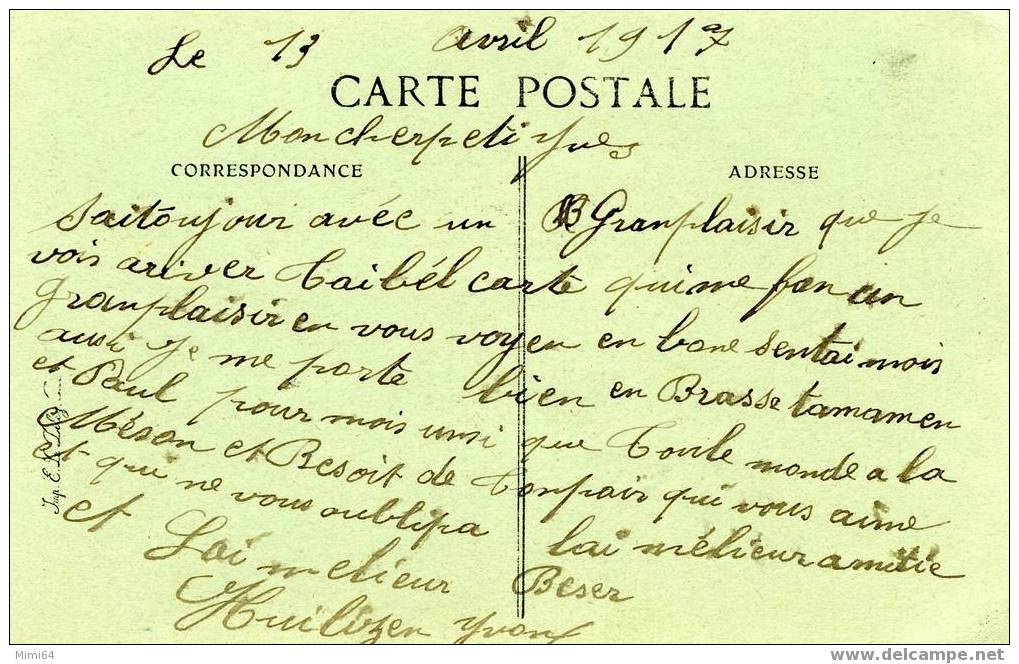 Le 13 avril 1917
CARTE POSTALE
Moncherpeti Yves
CORRESPONDANCE
ADRESSE
Saitoujour avéc un Granplaisir que je
vois ariver Taibél carte quime fon un
granplaisir en vous voyen en bone sentai mois
ausi je me porte bien en Brasse tamamen
et Paul pour mois unsi que Toule monde a la
Méson et Besoit de Tonpair qui vous aime
et qui ne vous oublipa lai mélieur amitie
et Lai melieur Beser
Yvon
Imp. E.
Mimi64
www.delcampe.net